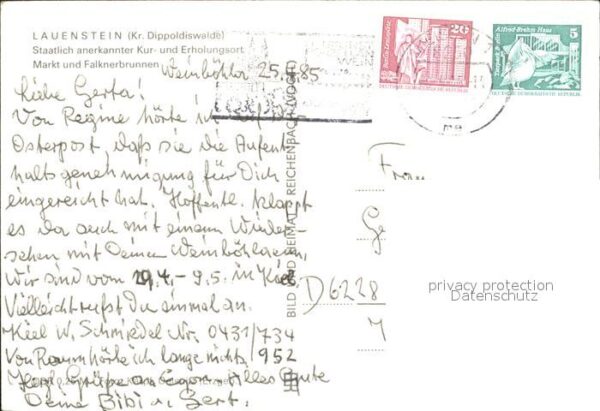 LAUENSTEIN (Kr. Dippoldiswalde)
Staatlich anerkannter Kur- und Erholungsort
Markt und Falknerbrunnen
Weinböhla 25.3.85
Liebe Gerta!
Von Regine hörte ich auf der
Osterpost, daß sie die Aufent-
haltsgenehmigung für Dich
eingereicht hat. Hoffentl. klappt
es da auch mit einem Wieder-
sehen mit Deinen Weinböhlaern.
Wir sind vom 19.4.-9.5. in Kiel.
Vielleicht rufst Du einmal an.
Kiel W. Schmiedel Nr. 0431/734
Von Raum hörte ich lange nichts, 952
Herzl. Grüße an Egon. Alles Gute
Deine Bibi u. Gert.
BILD UND HEIMAT REICHENBACH (VOGTL)
20
DEUTSCHE DEMOKRATISCHE REPUBLIK
Alfred-Brehm-Haus
5
Tierpark Berlin
DEUTSCHE DEMOKRATISCHE REPUBLIK
Frau
Ge
D6228
privacy protection
Datenschutz